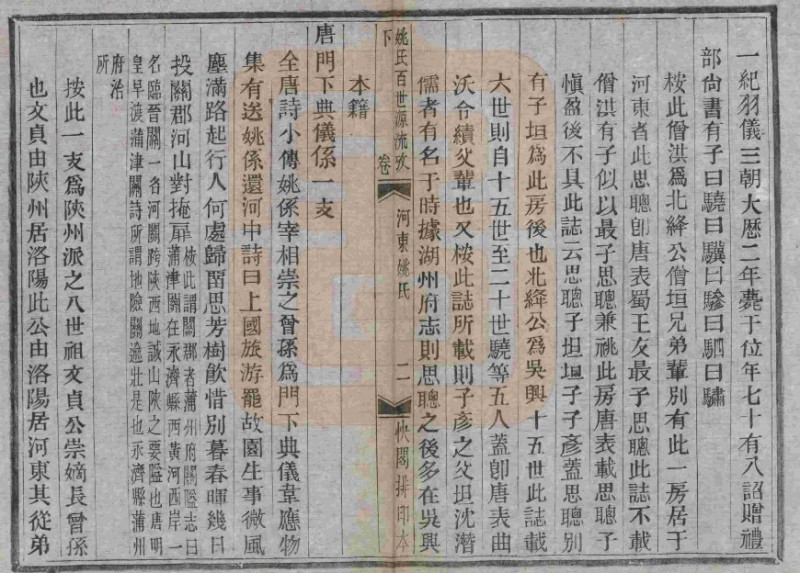 一紀羽儀三朝大曆二年薨于位年七十有八詔贈禮
部尚書有子曰驍曰驥曰驂曰駟曰驌
桉此僧洪爲北絳公僧垣兄弟輩別有此一房居于
河東者此思聰卽唐表蜀王友最子思聰此誌不載
僧洪有子似以最子思聰兼祧此房唐表載思聰子
愼盈後不具此誌云思聰子坦坦子子彥蓋思聰別
有子坦爲此房後也北絳公爲吳興十五世此誌載
六世則自十五世至二十世驍等五人蓋卽唐表曲
沃令績父輩也又桉此誌所載則子彥之父坦沈潛
儒者有名于時據湖州府志則思聰之後多在吳興
姚氏百世源流攷 卷下 河東姚氏 二 快閣排印本
本籍
唐門下典儀係一支
全唐詩小傳姚係宰相崇之曾孫爲門下典儀韋應物
集有送姚係還河中詩曰上國旅游罷故園生事微風
塵滿路起行人何處歸畱思芳樹飮惜別暮春暉幾日
投關郡河山對掩扉桉此謂關郡者蒲州府關隘志曰
蒲津關在永濟縣西黃河西岸一
名臨晉關一名河關跨陝西地誠山陝之要隘也唐明
皇早渡蒲津關詩所謂地險關逾壯是也永濟縣蒲州
府治
所
按此一支爲陝州派之八世祖文貞公崇嫡長曾孫
也文貞由陝州居洛陽此公由洛陽居河東其從弟